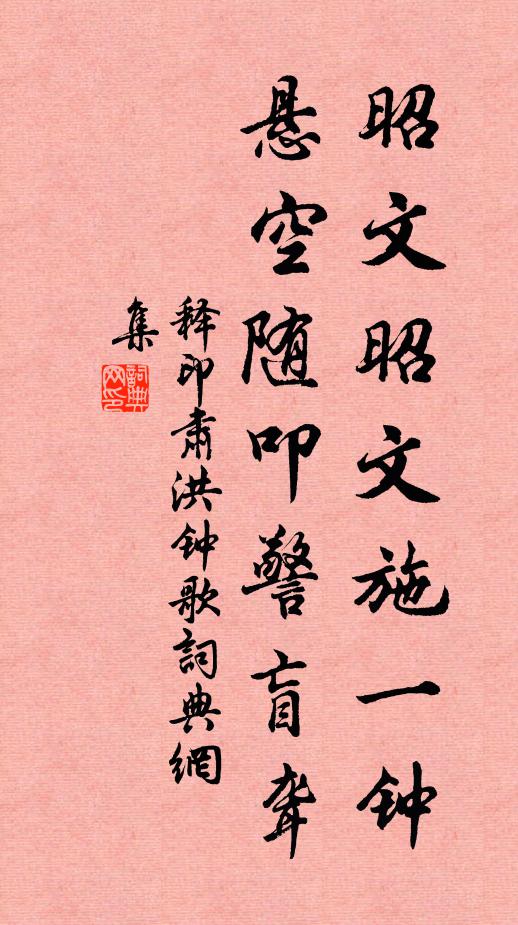 昭文昭文施一钟
悬空随叩警盲聋
释印肃洪钟歌詞典網
集
詞典
网印